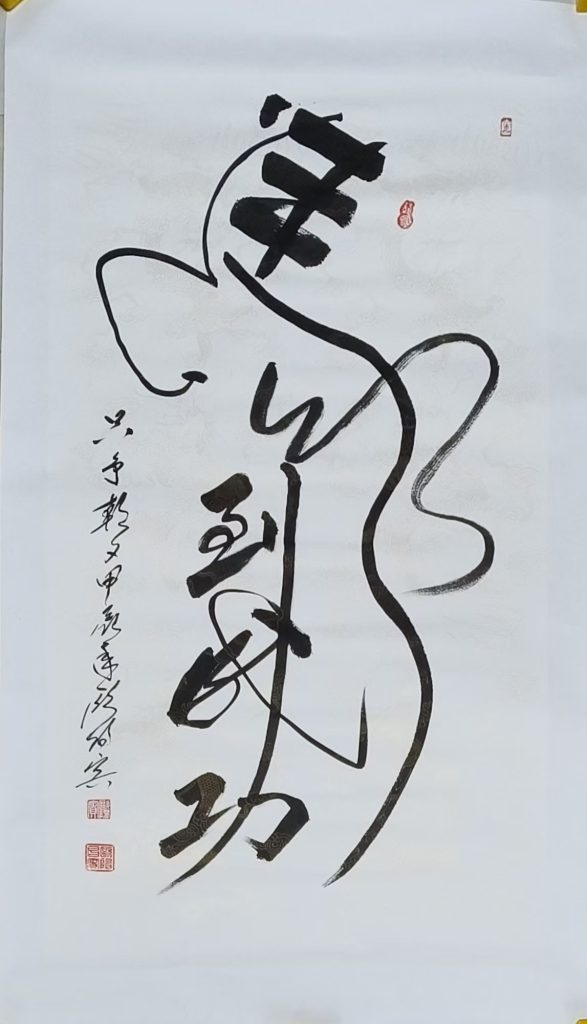 馬到成功
只争朝夕甲辰年